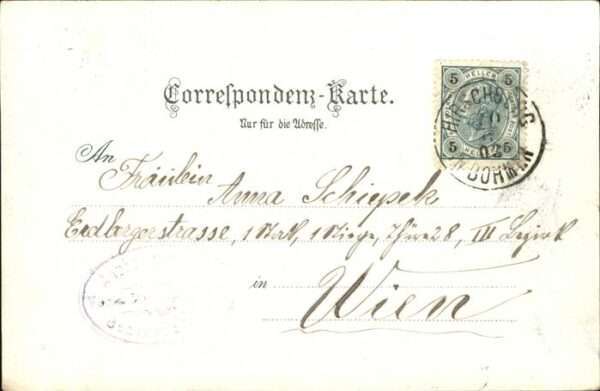 Correspondenz-Karte.
Nur für die Adresse.
5 HELLER 5
5 HELLER 5
HIRSCHBERG
02
BÖHMEN
An
Fräulein Anna Schiepek
Erdbergerstrasse, 1 Stock, 1 Stiege, Thüre 28, III Bezirk
in Wien